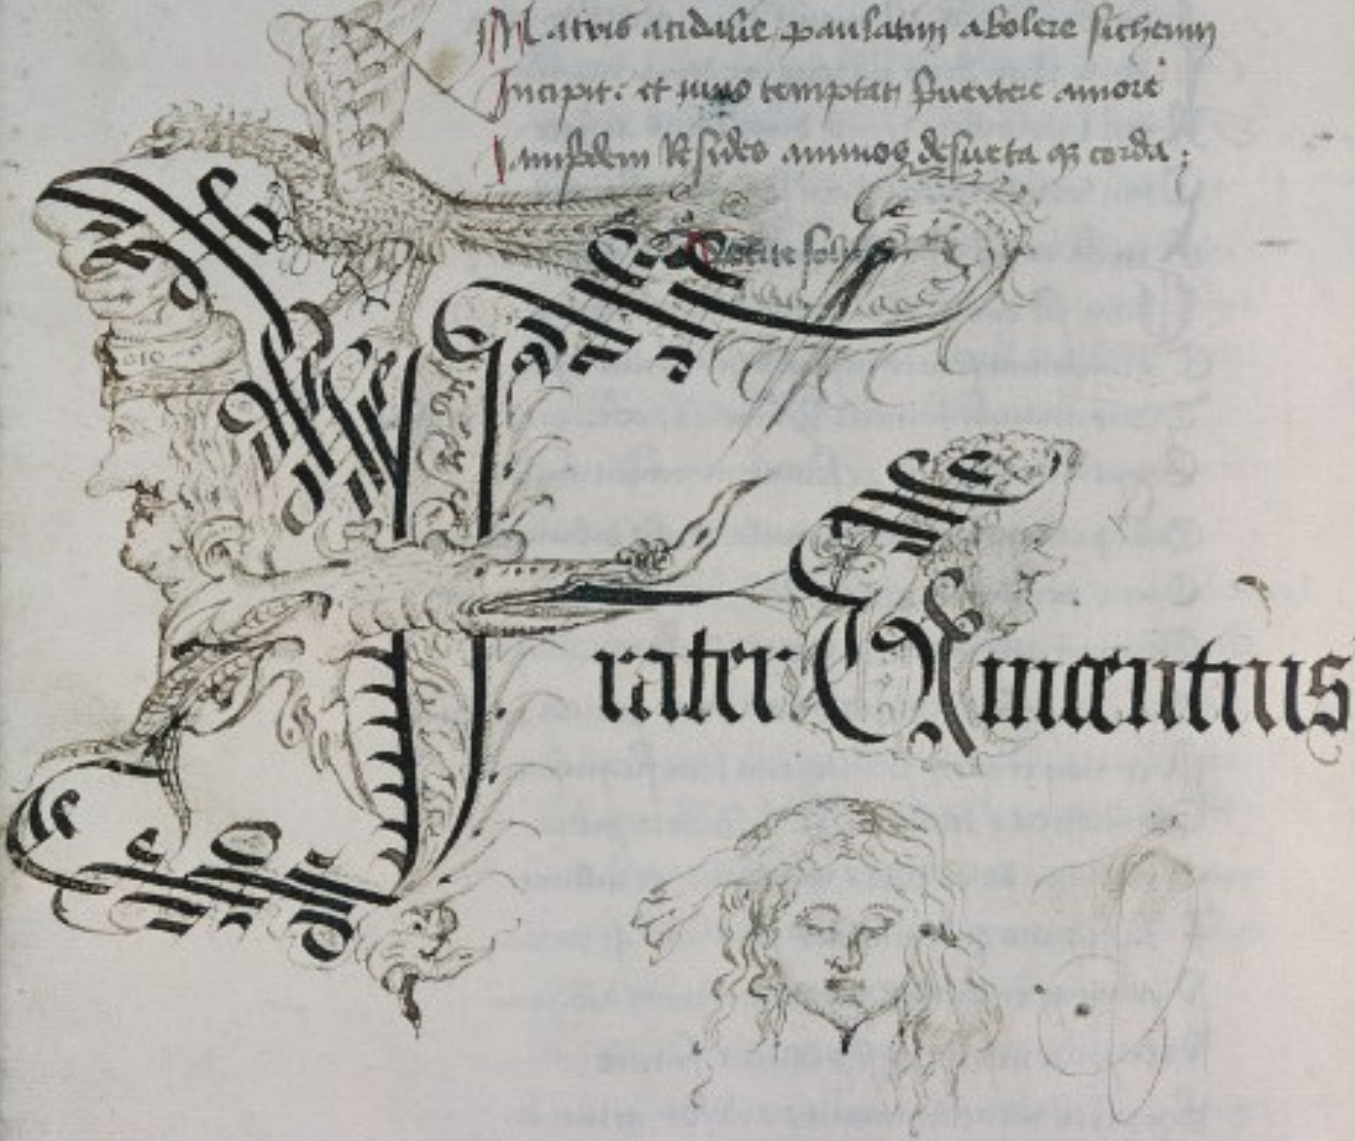 Matris acidalie paulatim abolere sicheum
Incipit. et uiuo temptat p̄uertere amore
Iamp̄dem Resides animos desueta qꝫ corda ;
Frater Vincentius